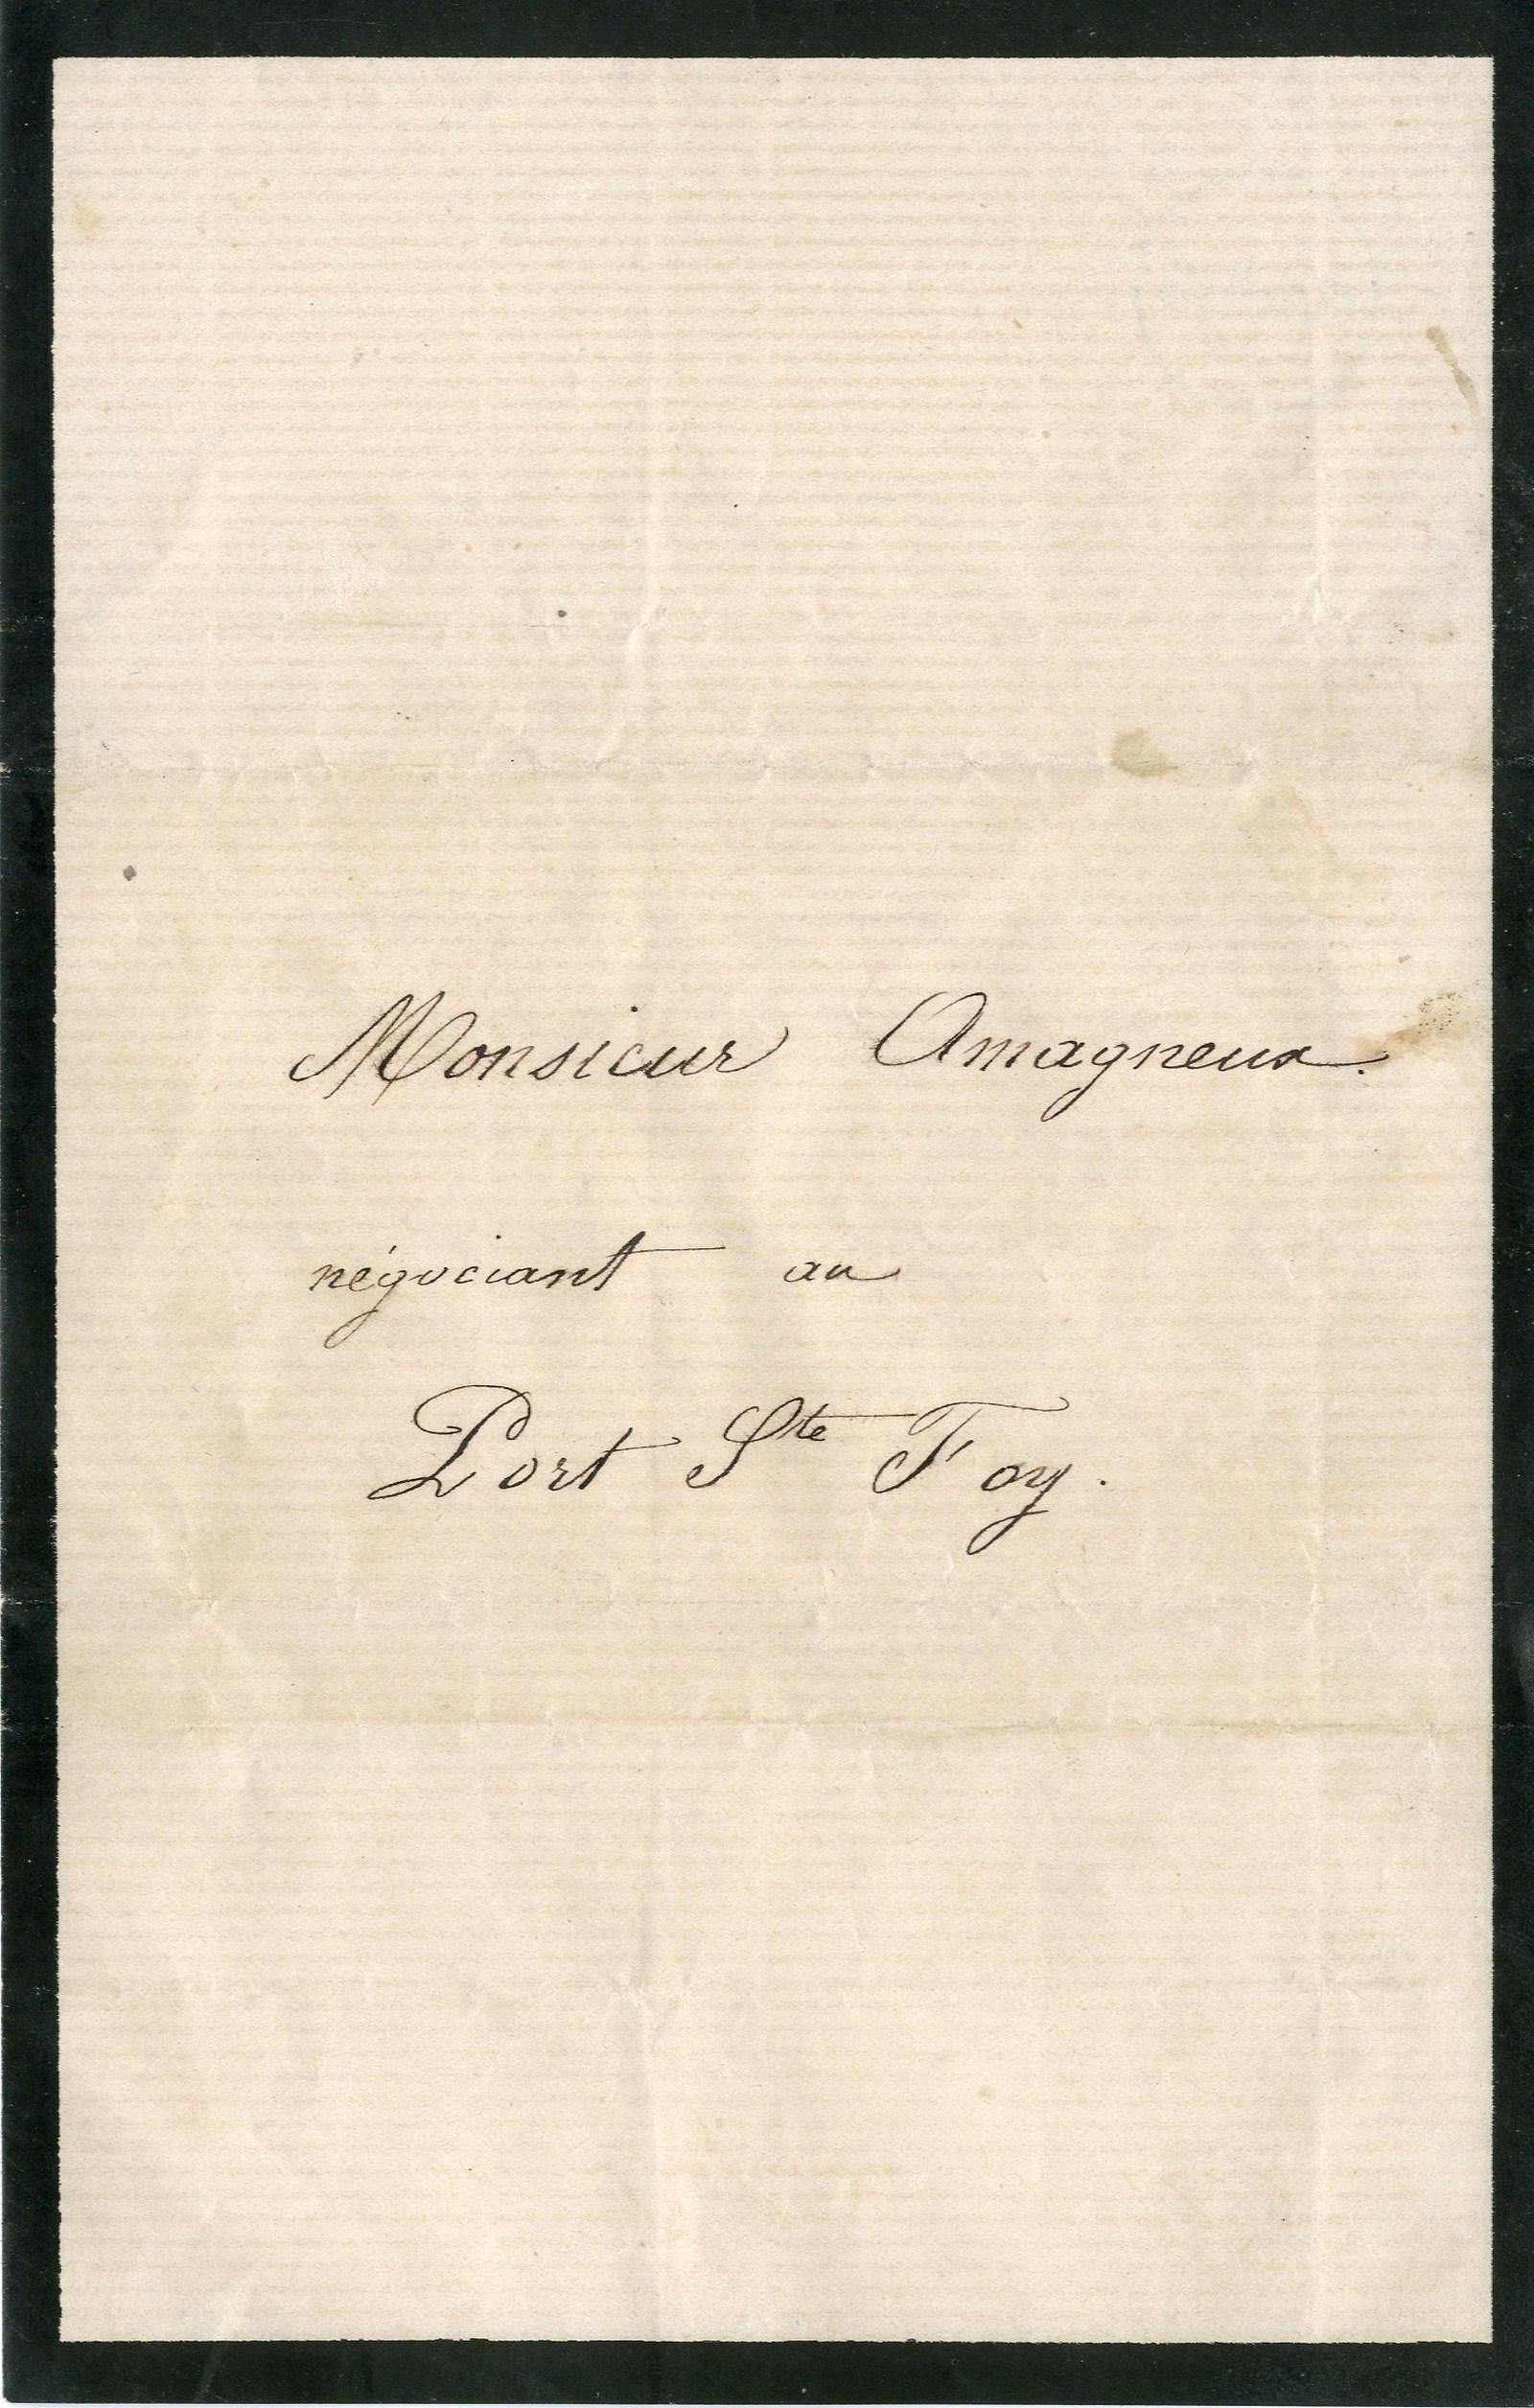 Monsieur Amagneux.
négociant au
Port Ste Foy.